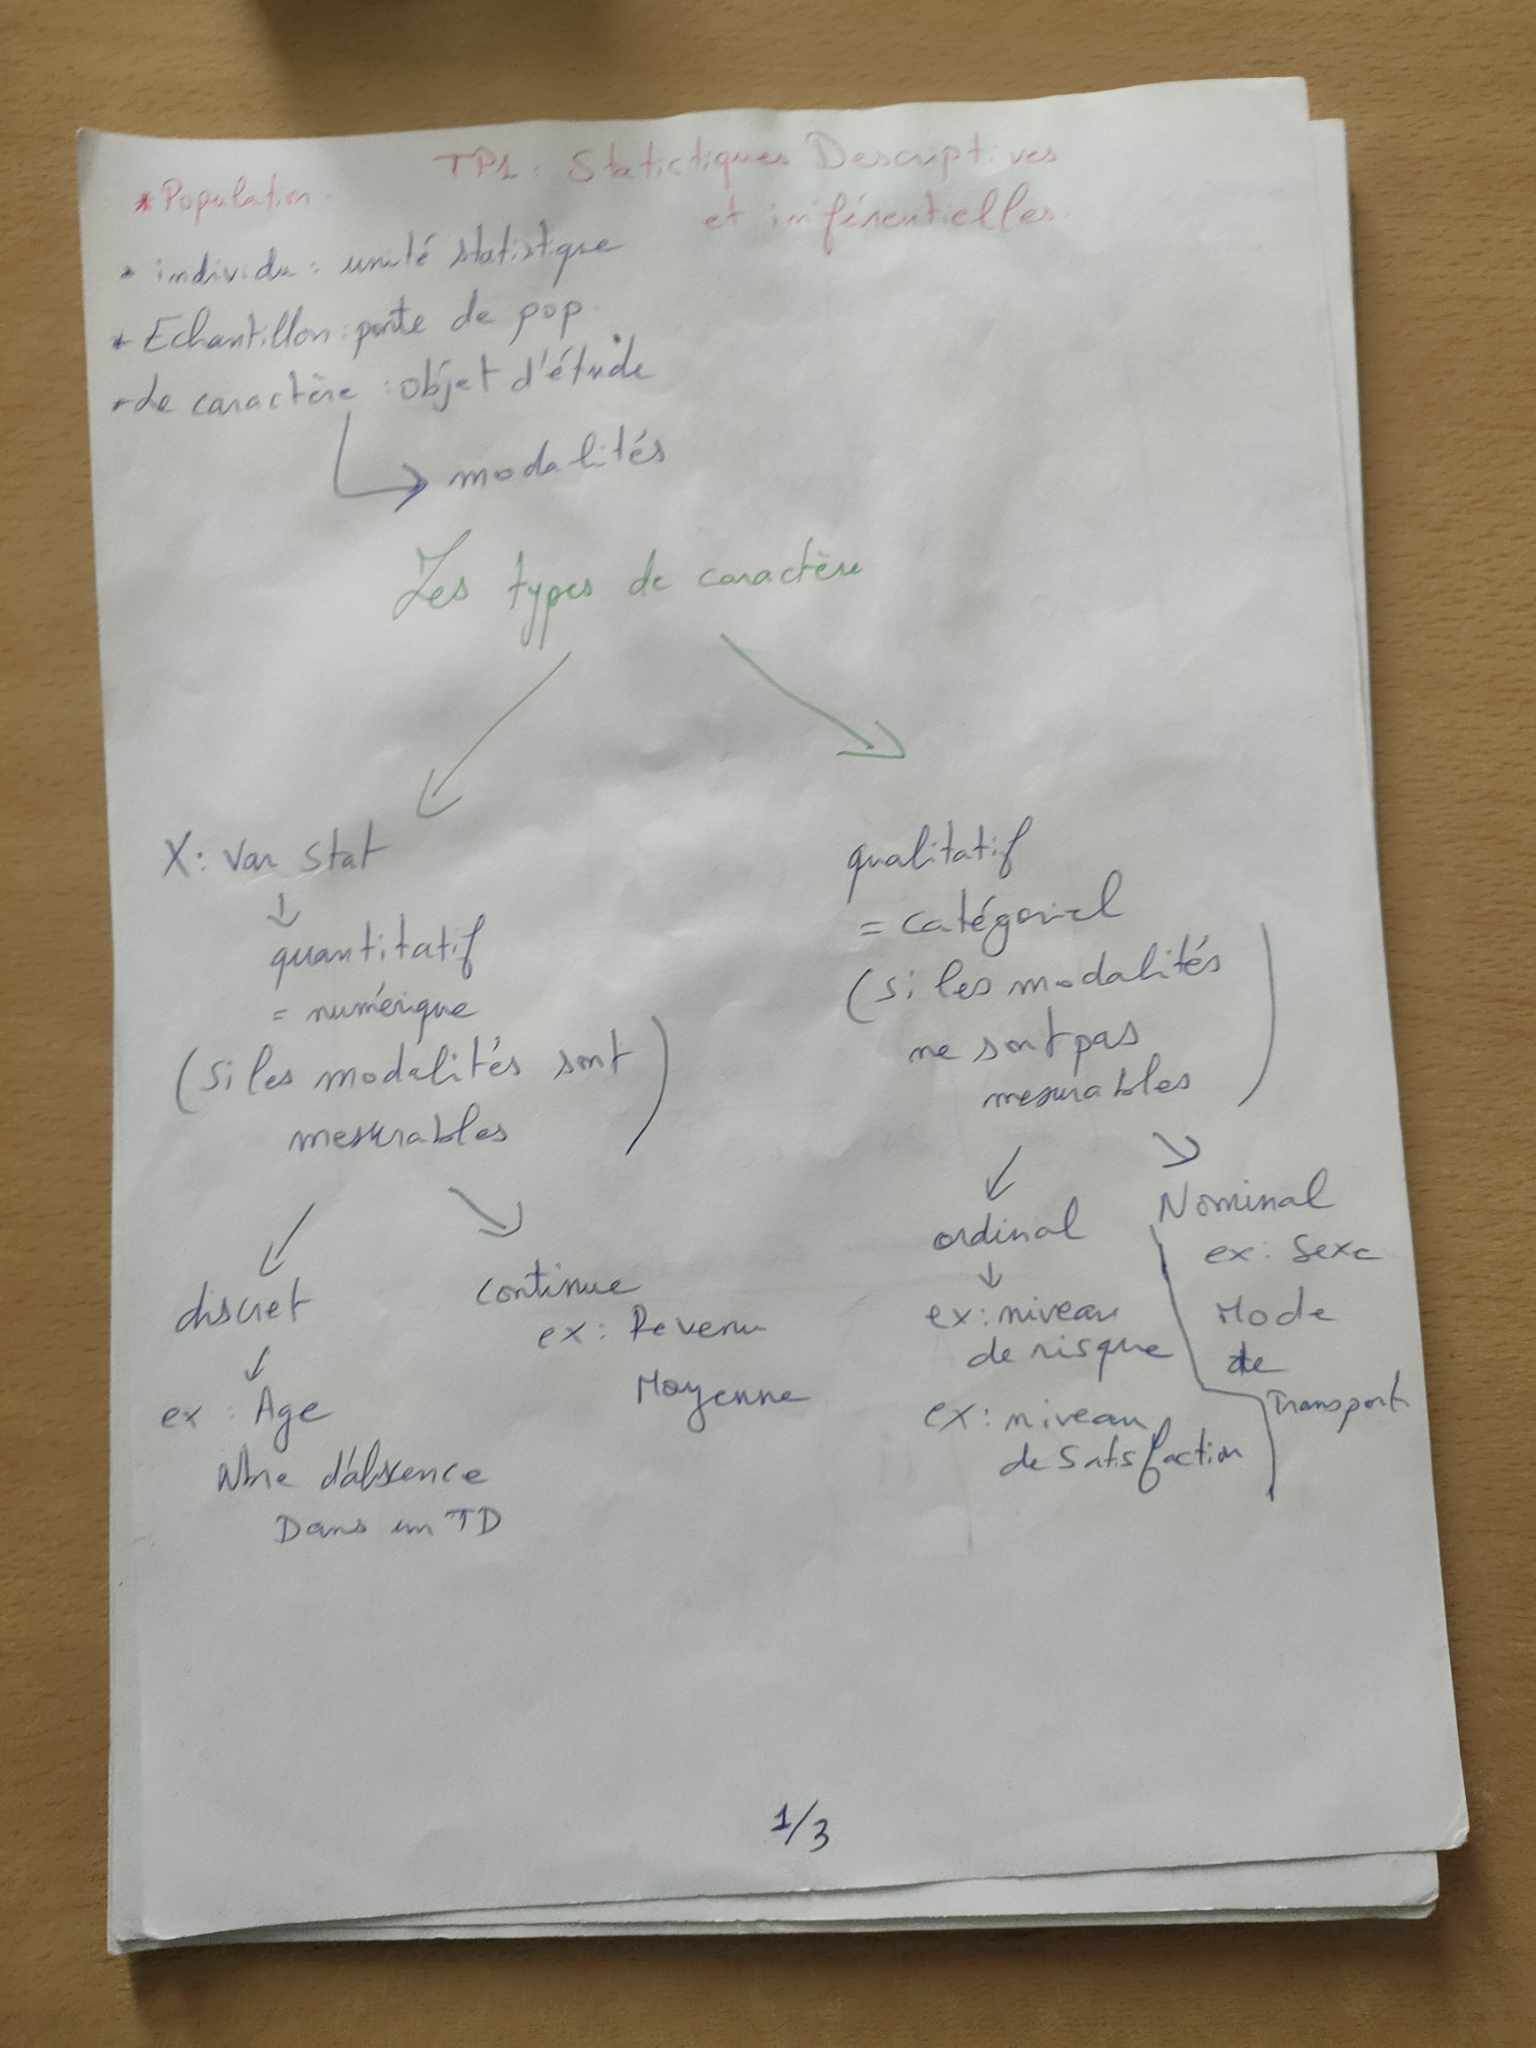 TP1 : Statictiques Descriptives
et inférentielles.
* Population.
* individu : unité statistique
* Echantillon : partie de pop.
- Le caractère : objet d'étude
modalités
Les types de caractère
X : Var stat
quantitatif
= numérique
(Si les modalités sont
mesurables)
discret
ex : Age
Nbre d'absence
Dans un TD
continue
ex : Revenu
Moyenne
qualitatif
= catégoriel
(Si les modalités
ne sont pas
mesurables)
ordinal
ex : niveau
de risque
ex : niveau
de Satisfaction
Nominal
ex : Sexe
Mode
de
Transport
1/3